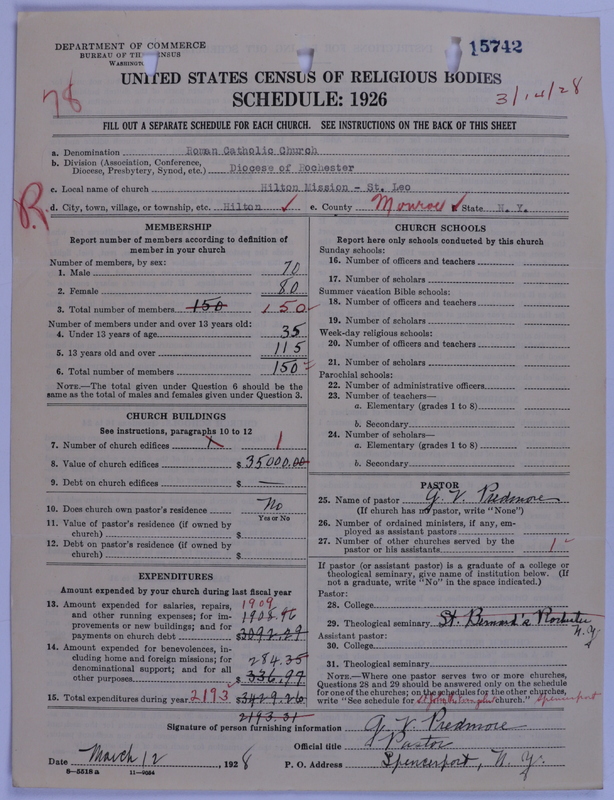 DEPARTMENT OF COMMERCE
BUREAU OF THE CENSUS
WASHINGTON
15742
UNITED STATES CENSUS OF RELIGIOUS BODIES
78
SCHEDULE: 1926
3/14/28
FILL OUT A SEPARATE SCHEDULE FOR EACH CHURCH. SEE INSTRUCTIONS ON THE BACK OF THIS SHEET
a. Denomination Roman Catholic Church
b. Division (Association, Conference, Diocese, Presbytery, Synod, etc.) Diocese of Rochester
c. Local name of church Hilton Mission - St. Leo
R
d. City, town, village, or township, etc. Hilton ✓ e. County Monroe ✓ State N. Y.
MEMBERSHIP
Report number of members according to definition of
member in your church
Number of members, by sex:
1. Male 70
2. Female 80
3. Total number of members 150 150
Number of members under and over 13 years old:
4. Under 13 years of age 35
5. 13 years old and over 115
6. Total number of members 150
NOTE.—The total given under Question 6 should be the
same as the total of males and females given under Question 3.
CHURCH BUILDINGS
See instructions, paragraphs 10 to 12
7. Number of church edifices 1 1
8. Value of church edifices $ 35000.00
9. Debt on church edifices $ —
10. Does church own pastor's residence No
Yes or No
11. Value of pastor's residence (if owned by
church) $
12. Debt on pastor's residence (if owned by
church) $
EXPENDITURES
Amount expended by your church during last fiscal year
13. Amount expended for salaries, repairs, 1909
and other running expenses; for im- 1908.96
provements or new buildings; and for
payments on church debt $3092.29
14. Amount expended for benevolences, in-
cluding home and foreign missions; for 284.35
denominational support; and for all
other purposes $ 336.97
15. Total expenditures during year 2193 $3429.26
2193.31
CHURCH SCHOOLS
Report here only schools conducted by this church
Sunday schools:
16. Number of officers and teachers
17. Number of scholars
Summer vacation Bible schools:
18. Number of officers and teachers
19. Number of scholars
Week-day religious schools:
20. Number of officers and teachers
21. Number of scholars
Parochial schools:
22. Number of administrative officers
23. Number of teachers—
a. Elementary (grades 1 to 8)
b. Secondary
24. Number of scholars—
a. Elementary (grades 1 to 8)
b. Secondary
PASTOR
25. Name of pastor G. V. Predmore
(If church has no pastor, write "None")
26. Number of ordained ministers, if any, em-
ployed as assistant pastors
27. Number of other churches served by the
pastor or his assistants 1
If pastor (or assistant pastor) is a graduate of a college or
theological seminary, give name of institution below. (If
not a graduate, write "No" in the space indicated.)
Pastor:
28. College
29. Theological seminary St. Bernard's Rochester
N.Y
Assistant pastor:
30. College
31. Theological seminary
NOTE.—Where one pastor serves two or more churches,
Questions 28 and 29 should be answered only on the schedule
for one of the churches; on the schedules for the other churches,
write "See schedule for church." Spencerport
Signature of person furnishing information G. V. Predmore
Official title Pastor
Date March 12, 1928 P. O. Address Spencerport, N. Y.
8-5518 a 11-9054